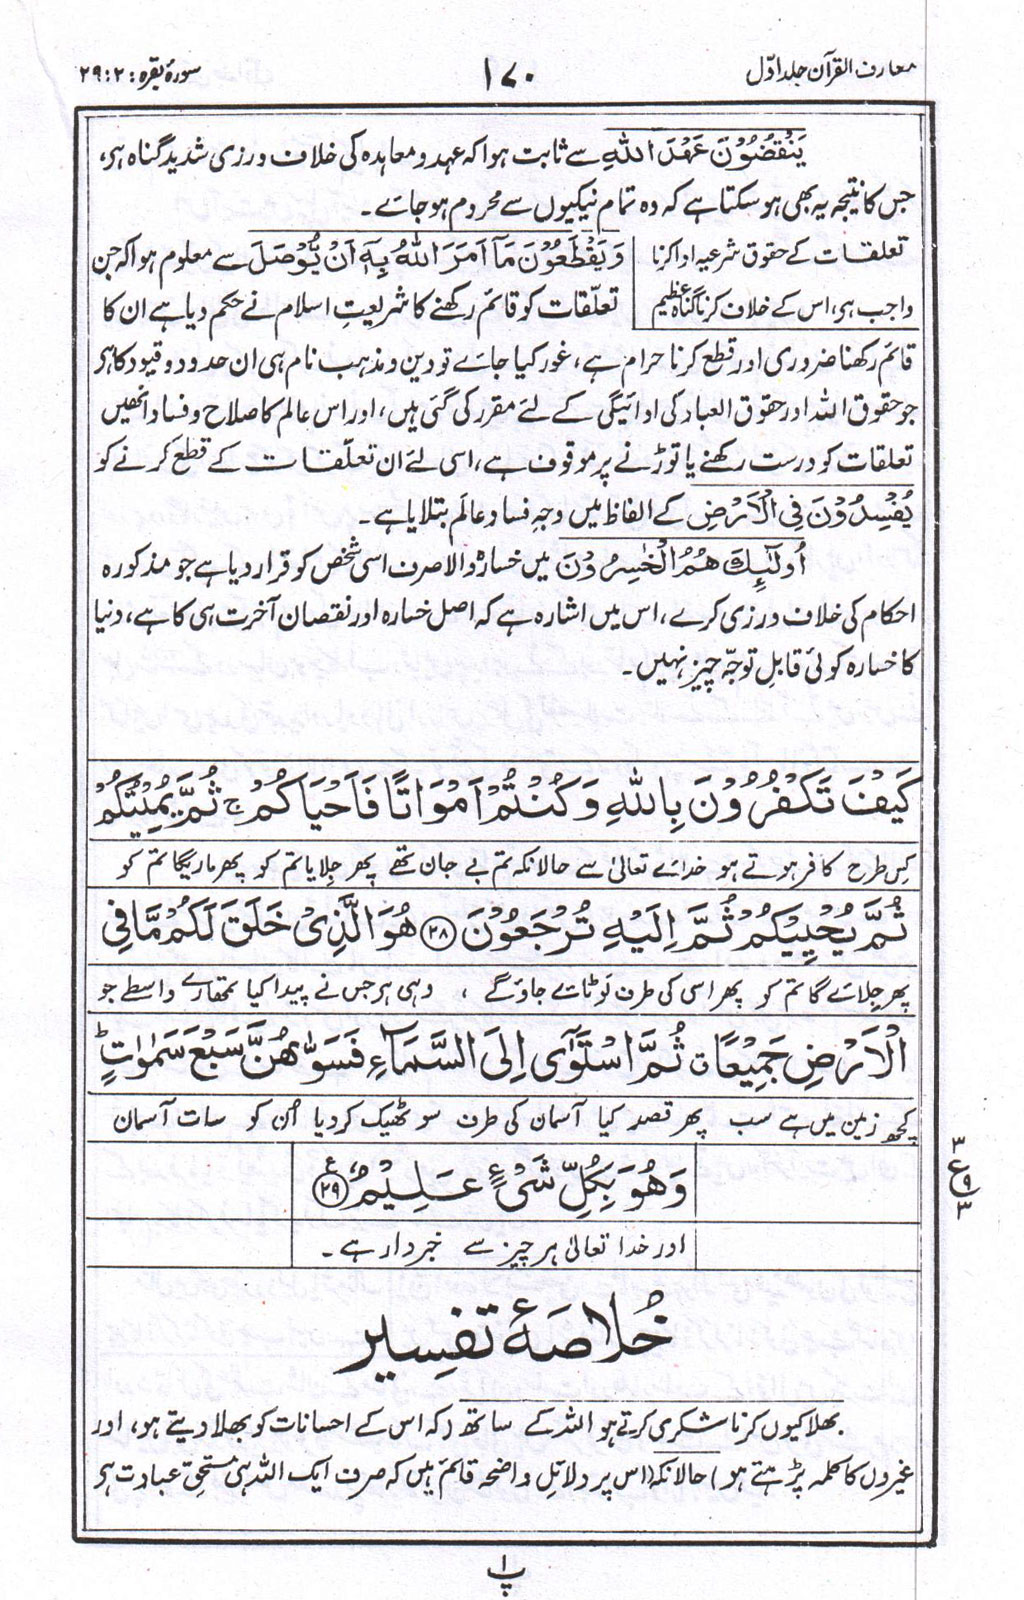 معارف القرآن جلد اوّل
۱۷۰
سورۂ بقرہ : ۲ : ۲۹
یَنْقُضُوْنَ عَهْدَ اللهِ سے ثابت ہوا کہ عہد و معاہدہ کی خلاف ورزی شدید گناہ ہی،
جس کا نتیجہ یہ بھی ہو سکتا ہے کہ وہ تمام نیکیوں سے محروم ہو جائے ۔
تعلقات کے حقوق شرعیہ ادا کرنا
واجب ہی، اس کے خلاف کرنا گناہ عظیم
وَیَقْطَعُوْنَ مَآ اَمَرَ اللهُ بِهٖٓ اَنْ یُّوْصَلَ سے معلوم ہوا کہ جن
تعلّقات کو قائم رکھنے کا شریعتِ اسلام نے حکم دیا ہے ان کا
قائم رکھنا ضروری اور قطع کرنا حرام ہے، غور کیا جائے تو دین و مذہب نام ہی ان حدود و قیود کا ہی
جو حقوق اللہ اور حقوق العباد کی ادائیگی کے لئے مقرر کی گئی ہیں، اور اس عالم کا صلاح و فساد انھیں
تعلقات کو درست رکھنے یا توڑنے پر موقوف ہے، اسی لئے ان تعلّقات کے قطع کرنے کو
یُفْسِدُوْنَ فِی الْاَرْضِ کے الفاظ میں وجہِ فساد عالَم بتلایا ہے ۔
اُولٰٓئِكَ هُمُ الْخٰسِرُوْنَ میں خسارہ والا صرف اسی شخص کو قرار دیا ہے جو مذکورہ
احکام کی خلاف ورزی کرے، اس میں اشارہ ہے کہ اصل خسارہ اور نقصان آخرت ہی کا ہے، دنیا
کا خسارہ کوئی قابلِ توجّہ چیز نہیں ۔
كَیْفَ تَكْفُرُوْنَ بِاللهِ وَكُنْتُمْ اَمْوَاتًا فَاَحْیَاكُمْ ج ثُمَّ یُمِیْتُكُمْ
کِس طرح کافر ہوتے ہو خدائے تعالیٰ سے حالانکہ تم بے جان تھے پھر جِلایا تم کو پھر ماریگا تم کو
ثُمَّ یُحْیِیْكُمْ ثُمَّ اِلَیْهِ تُرْجَعُوْنَ ﴿۲۸﴾ هُوَ الَّذِیْ خَلَقَ لَكُمْ مَّا فِی
پھر جِلائے گا تم کو پھر اسی کی طرف لَوٹائے جاؤ گے ، وہی ہی جس نے پیدا کیا تمھارے واسطے جو
الْاَرْضِ جَمِیْعًا ق ثُمَّ اسْتَوٰٓی اِلَی السَّمَآءِ فَسَوّٰىهُنَّ سَبْعَ سَمٰوٰتٍ ط
کچھ زمین میں ہے سب پھر قصد کیا آسمان کی طرف سو ٹھیک کردیا اُن کو سات آسمان
وَهُوَ بِكُلِّ شَیْءٍ عَلِیْمٌ ﴿۲۹﴾ ع
اور خدا تعالیٰ ہر چیز سے خبردار ہے ۔
۳
ع
۹
۳
خُلاصۂ تفسیر
بھلا کیوں کر ناشکری کرتے ہو اللہ کے ساتھ (کہ اس کے احسانات کو بھلا دیتے ہو، اور
غیروں کا کلمہ پڑھتے ہو) حالانکہ (اس پر دلائلِ واضحہ قائم ہیں کہ صرف ایک اللہ ہی مستحقِ عبادت ہی
پ ۱